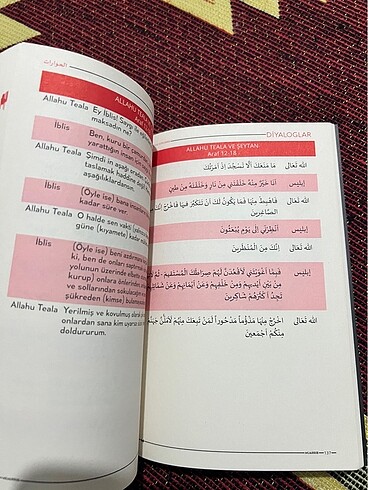 الحوارات
ALLAHU TEALA VE
Allahu Teala Ey İblis! Saygı ile
maksadın ne?
İblis Ben, kuru bir
yarattığın insan için
Allahu Teala Şimdi in aşağı
taslamak haddine değil
aşağılıklardansın.
İblis (Öyle ise) bana insanların
kadar süre ver.
Allahu Teala O halde sen vakti
güne (kıyamete) kadar
İblis (Öyle ise) beni azdırmana
ki, ben de onları saptırmak
yolunun üzerinde elbette
kurup) onlara önlerinden
ve sollarından sokulacağım
şükreden (kimse) bulamayacaksın
Allahu Teala Yerilmiş ve kovulmuş olarak
onlardan sana kim uyarsa
doldururum.
DİYALOGLAR
ALLAHU TEALA VE ŞEYTAN
Araf 12-18
الله تَعَالَى مَا مَنَعَكَ اَلَّا تَسْجُدَ اِذْ اَمَرْتُكَ
إبليس اَنَا خَيْرٌ مِنْهُ خَلَقْتَنِي مِنْ نَارٍ وَخَلَقْتَهُ مِنْ طِينٍ
الله تَعَالَى فَاهْبِطْ مِنْهَا فَمَا يَكُونُ لَكَ اَنْ تَتَكَبَّرَ فِيهَا فَاخْرُجْ اِنَّكَ مِنَ
الصَّاغِرِينَ
إبليس اَنْظِرْنِي اِلَى يَوْمِ يُبْعَثُونَ
الله تَعَالَى اِنَّكَ مِنَ الْمُنْظَرِينَ
إبليس فَبِمَا اَغْوَيْتَنِي لَاَقْعُدَنَّ لَهُمْ صِرَاطَكَ الْمُسْتَقِيمَ ثُمَّ
مِنْ بَيْنِ اَيْدِيهِمْ وَمِنْ خَلْفِهِمْ وَعَنْ اَيْمَانِهِمْ وَعَنْ شَمَائِلِهِمْ
تَجِدُ اَكْثَرَهُمْ شَاكِرِينَ
الله تَعَالَى اخْرُجْ مِنْهَا مَذْؤُمًا مَدْحُورًا لَمَنْ تَبِعَكَ مِنْهُمْ لَاَمْلَئَنَّ جَهَنَّمَ
مِنْكُمْ اَجْمَعِينَ
137